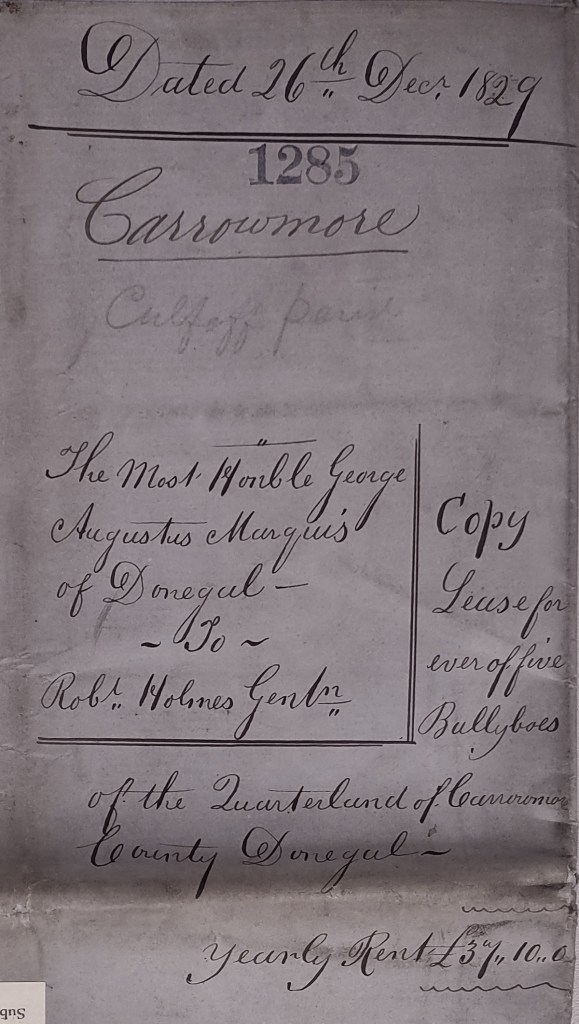 Dated 26th Decr. 1829
1285
Carrowmore
Culfaff parish
The Most Honble George
Augustus Marquis
of Donegal —
~ To ~
Robt. Holmes Gentn
Copy
Lease for
ever of five
Ballyboes
of the Quarterland of Carrowmore
County Donegal ~
Yearly Rent £37,, 10,, 0
Sub